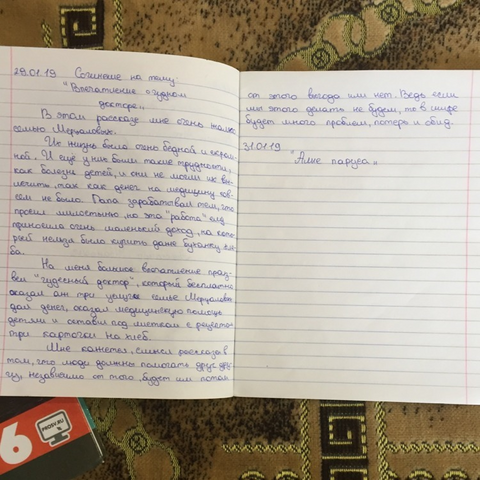 29.01.19 Сочинение на тему:
"Впечатление о чудном
докторе"
В этом рассказе мне очень жалко
семью Мерцаловых.
Их жизнь была очень бедной и скром-
ной. И ещё у них были такие трудности,
как болезни детей, и они не могли их вы-
лечить, так как денег на медицину сов-
сем не было. Папа зарабатывал тем, что
просил милостыню, но эта "работа"
приносила очень маленький доход, на кото-
рый нельзя было купить даже буханку хле-
ба.
На меня большое впечатление произ-
вёл "чудесный доктор", который бесплатно
оказал аж три услуги семье Мерцаловых
дал денег, оказал медицинскую помощь
детям и оставил под листком с рецептом
три карточки на хлеб.
Мне кажется, смысл рассказа в
том, что люди должны помогать друг дру-
гу, независимо от того, будет им потом
от этого выгода или нет. Ведь если
мы этого делать не будем, то в мире
будет много проблем, потерь и обид.
31.01.19
"Алые паруса"
6
PROSV.RU